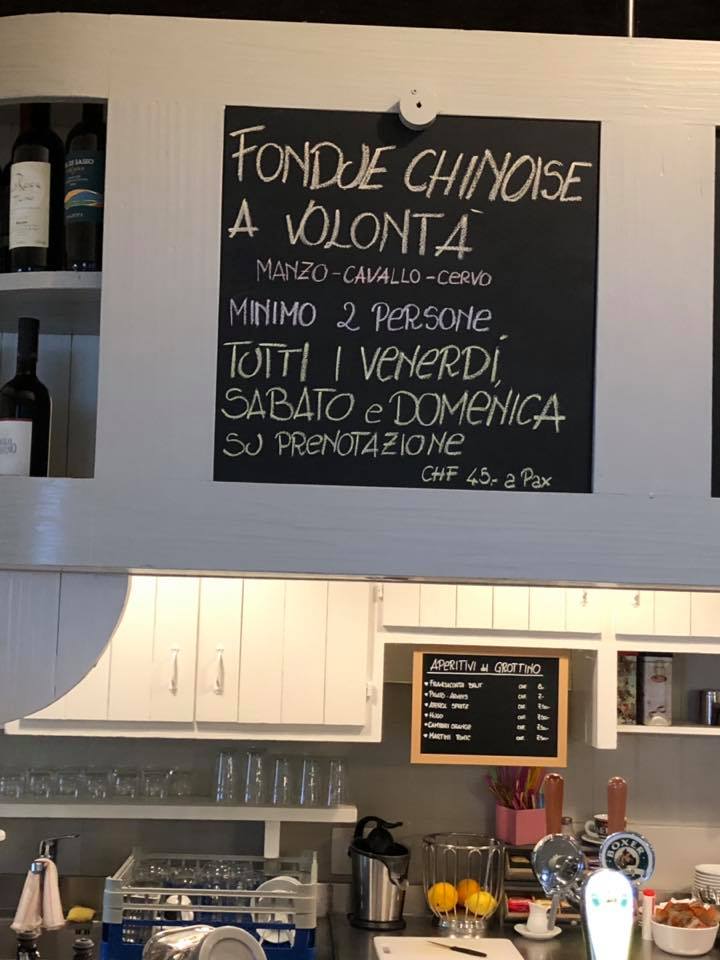 FONDUE CHINOISE
A VOLONTÀ
MANZO - CAVALLO - CERVO
MINIMO 2 PERSONE
TUTTI I VENERDÍ,
SABATO e DOMENICA
SU PRENOTAZIONE
CHF 45.- a Pax
APERITIVI del GROTTINO
FRANCIACORTA BRUT CHF 8.-
APEROL SPRITZ CHF 7.50
HUGO CHF 7.50
CAMPARI ORANGE CHF 7.50
MARTINI TONIC CHF 7.50
BOXER